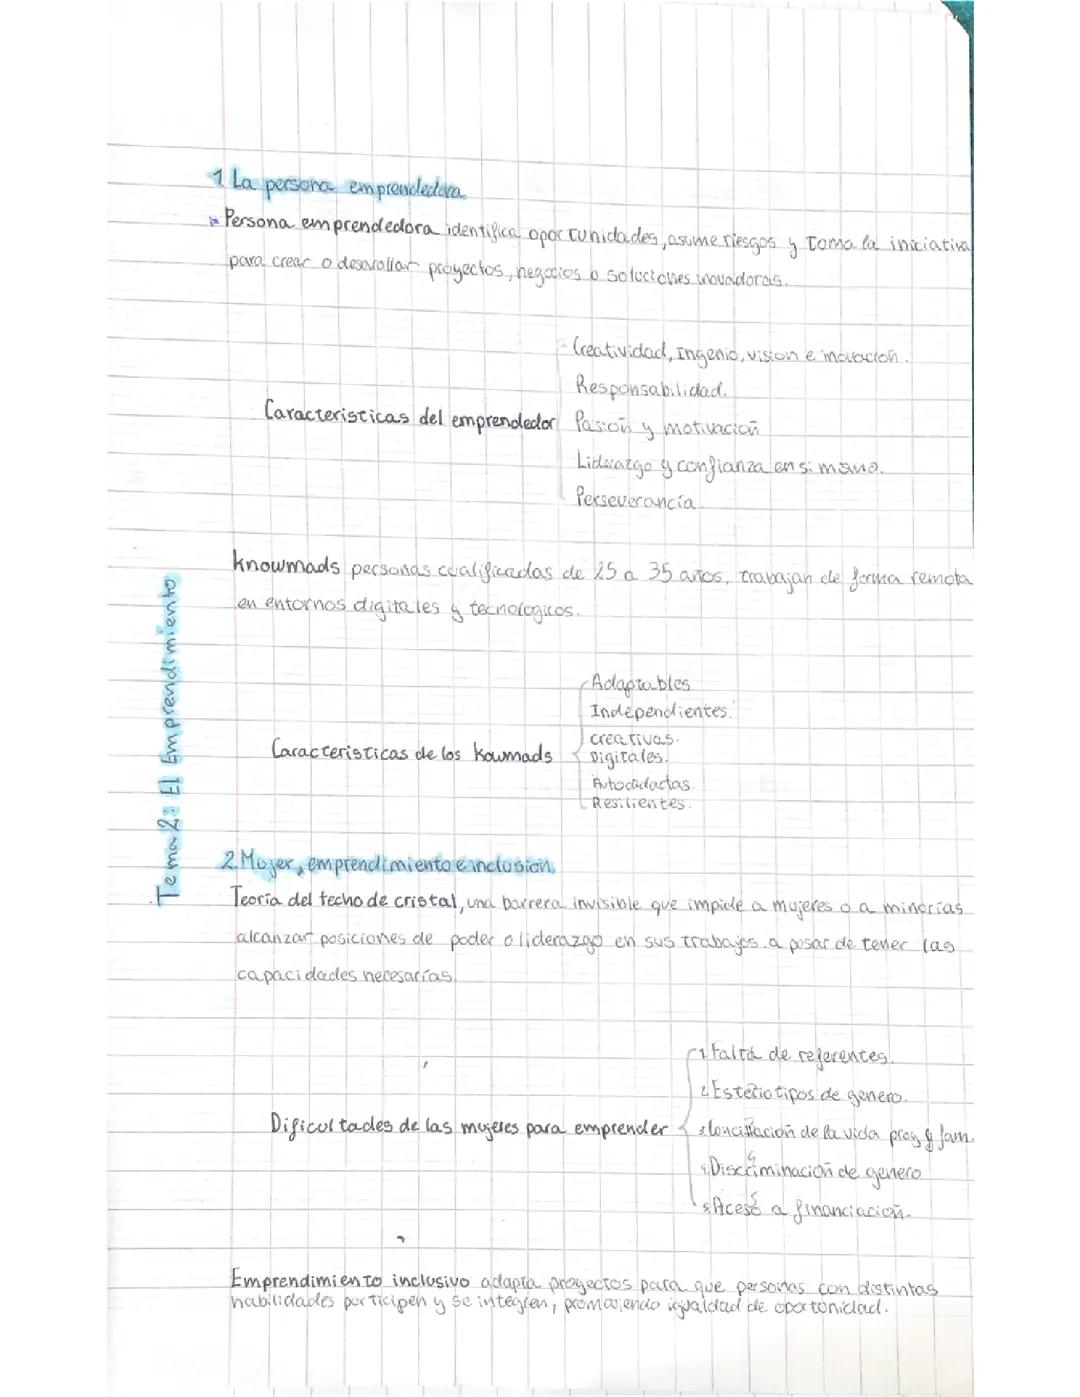 Tema 2: El Emprendimiento
1 La persona emprendedora
Persona emprendedora identifica oportunidades, asume riesgos y toma la iniciativa
para crear o desarollar proyectos, negocios o soluciones inovadoras.
Creatividad, Ingenio, vision e inovación.
Responsabilidad.
Caracteristicas del emprendedor
Pasión y motivación
Liderazgo y confianza en si mismo.
Perseverancia
knowmads personas cualificadas de 25 a 35 años, trabajan de forma remota
en entornos digitales y tecnologicos.
Adaptables
Independientes.
creativas.
Caracteristicas de los Kowmads
Digitales.
Autodidactas
Resilientes.
2. Mujer, emprendimiento e inclusión
Teoría del techo de cristal, una barrera invisible que impide a mujeres o a minorías
alcanzar posiciones de poder o liderazgo en sus trabajos a pesar de tener las
capacidades necesarías.
1 Falta de referentes.
2 Esteriotipos de genero.
Dificultades de las mujeres para emprender
3 Conciliación de la vida prof y fam.
4 Discriminación de genero
5 Aceso a financiación.
Emprendimiento inclusivo adapta proyectos para que personas con distintas
habilidades participen y se integren, promoviendo igualdad de oportunidad.